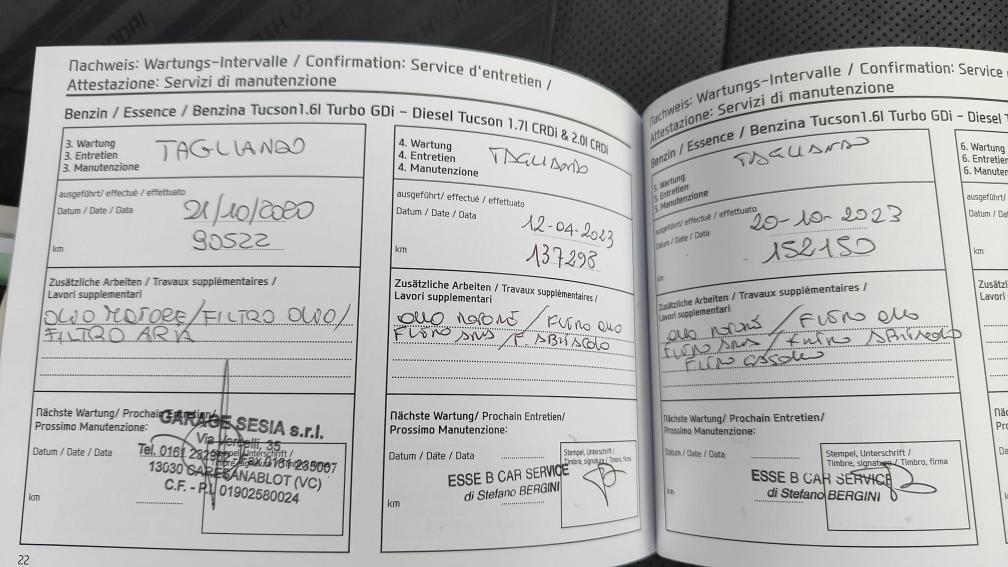 Nachweis: Wartungs-Intervalle / Confirmation: Service d'entretien /
Attestazione: Servizi di manutenzione
Benzin / Essence / Benzina Tucson1.6l Turbo GDi – Diesel Tucson 1.7l CRDi & 2.0l CRDi
3. Wartung
3. Entretien
3. Manutenzione
TAGLIANDO
ausgeführt/ effectué / effettuato
Datum / Date / Data
21/10/2020
km
90522
Zusätzliche Arbeiten / Travaux supplémentaires /
Lavori supplementari
OLIO MOTORE/FILTRO OLIO/
FILTRO ARIA
Nächste Wartung/ Prochain Entretien/
Prossimo Manutenzione:
Datum / Date / Data
km
GARAGE SESIA s.r.l.
Via Vercelli, 35
Tel. 0161 - Fax 0161 235097
13030 CARESANABLOT (VC)
C.F. - P.I. 01902580024
22
4. Wartung
4. Entretien
4. Manutenzione
TAGLIANDO
ausgeführt/ effectué / effettuato
Datum / Date / Data
12-04-2023
km
137298
Zusätzliche Arbeiten / Travaux supplémentaires /
Lavori supplementari
OLIO MOTORE / FILTRO OLIO
FILTRO ARIA / F. ABITACOLO
Nächste Wartung/ Prochain Entretien/
Prossimo Manutenzione:
Datum / Date / Data
km
Stempel, Unterschrift /
Timbre, signature / Timbro, firma
ESSE B CAR SERVICE
di Stefano BERGINI
Nachweis: Wartungs-Intervalle / Confirmation: Service
Attestazione: Servizi di manutenzione
Benzin / Essence / Benzina Tucson1.6l Turbo GDi – Diesel
5. Wartung
5. Entretien
5. Manutenzione
TAGLIANDO
ausgeführt/ effectué / effettuato
Datum / Date / Data
20-10-2023
km
152150
Zusätzliche Arbeiten / Travaux supplémentaires /
Lavori supplementari
OLIO MOTORE / FILTRO OLIO
FILTRO ARIA / FILTRO ABITACOLO
FILTRO GASOLIO
Nächste Wartung/ Prochain Entretien/
Prossimo Manutenzione:
Datum / Date / Data
km
Stempel, Unterschrift /
Timbre, signature / Timbro, firma
ESSE B CAR SERVICE
di Stefano BERGINI
6. Wartung
6. Entretien
6. Manuten
ausgeführt/
Datum / D
km